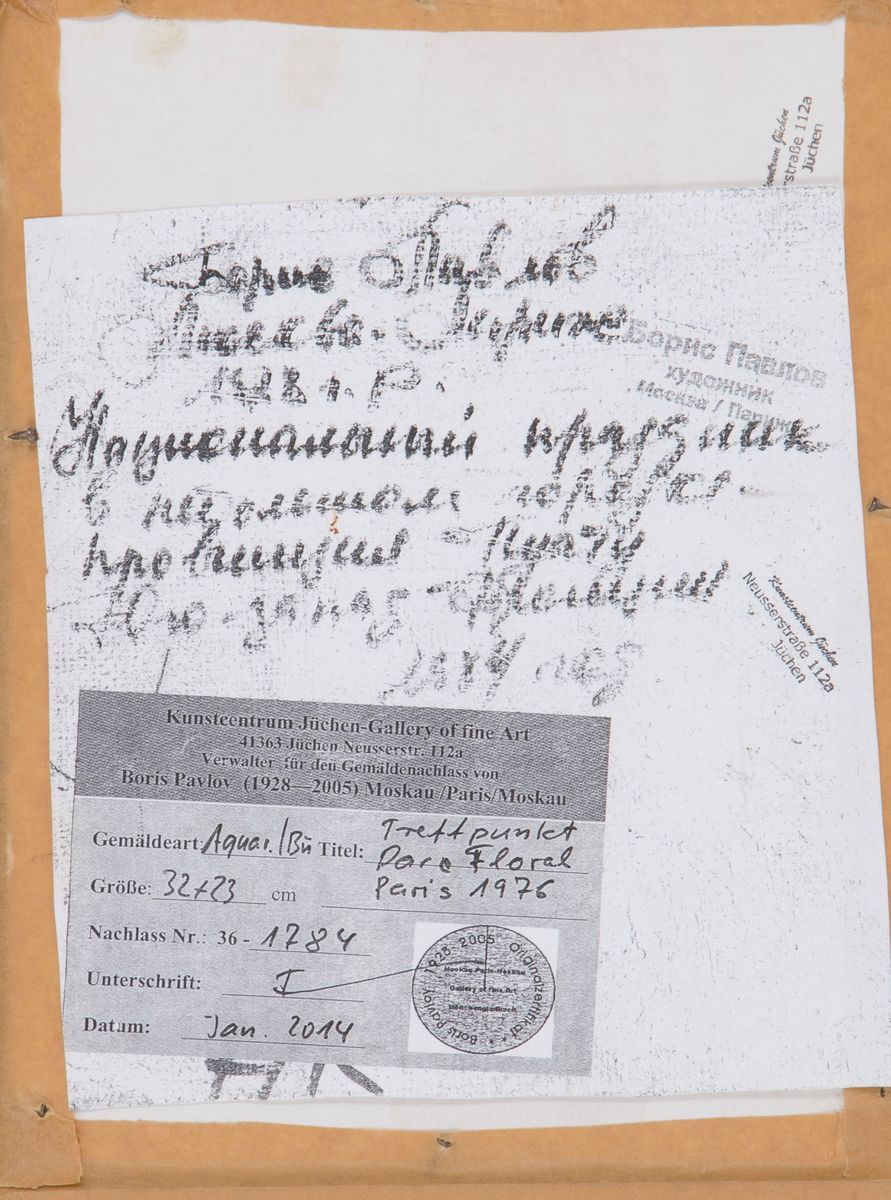 Kunstcentrum Jüchen
Neusserstraße 112a
Jüchen
Борис Павлов
Москва - Париж
Борис Павлов
художник
Москва / Париж
праздник
в небольшом городке
провинции
Юго-запад Франции
Kunstcentrum Jüchen
Neusserstraße 112a
Jüchen
Kunstcentrum Jüchen-Gallery of fine Art
41363 Jüchen Neusserstr. 112a
Verwalter für den Gemäldenachlass von
Boris Pavlov (1928—2005) Moskau /Paris/Moskau
Gemäldeart: Aquar./Bü Titel: Treffpunkt
Parc Floral
Größe: 32x23 cm Paris 1976
Nachlass Nr.: 36 - 1784
Unterschrift:
Datum: Jan. 2014
Boris Pavlov 1928-2005 Originalzertifikat
Moskau-Paris-Moskau
Gallery of fine Art
Mönchengladbach